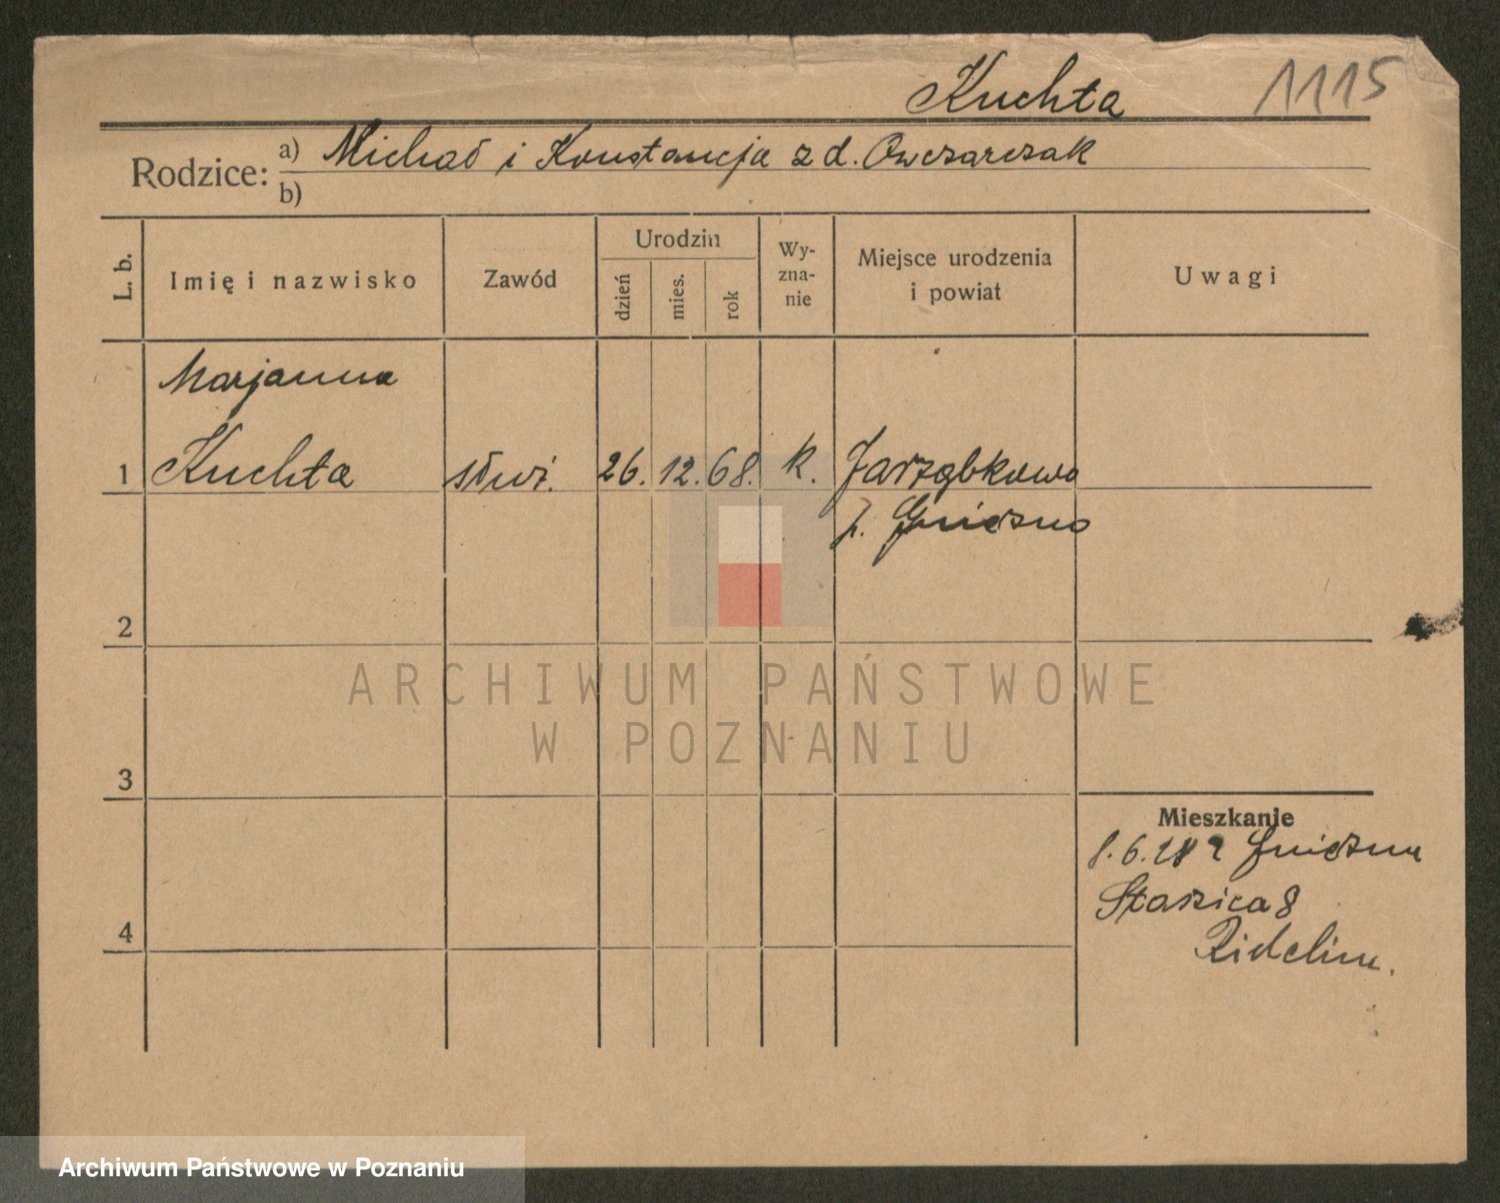 Kuchta 1115
Rodzice: a) Michał i Konstancja z d. Owczarczak
b)
L. b. Imię i nazwisko Zawód Urodzin dzień mies. rok Wy-zna-nie Miejsce urodzenia i powiat Uwagi
Marjanna
1 Kuchta służ. 26. 12. 68. k. Jarząbkowo
p. Gniezno
2
3
4
Mieszkanie
8.6.28 z Gniezna
Staszica 8
ARCHIWUM PAŃSTWOWE
W POZNANIU
Archiwum Państwowe w Poznaniu